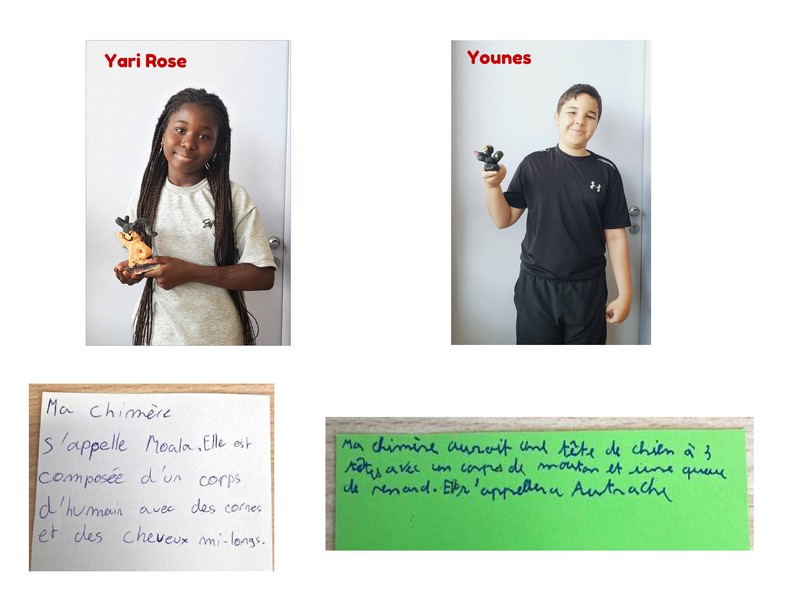 Yari Rose
Younes
Ma chimère
s'appelle Moala. Elle est
composée d'un corps
d'humain avec des cornes
et des cheveux mi-longs.
Ma chimère auroit une tête de chien à 3
têtes avec un corps de mouton et une queue
de renard. Elle s'appellera Autrache